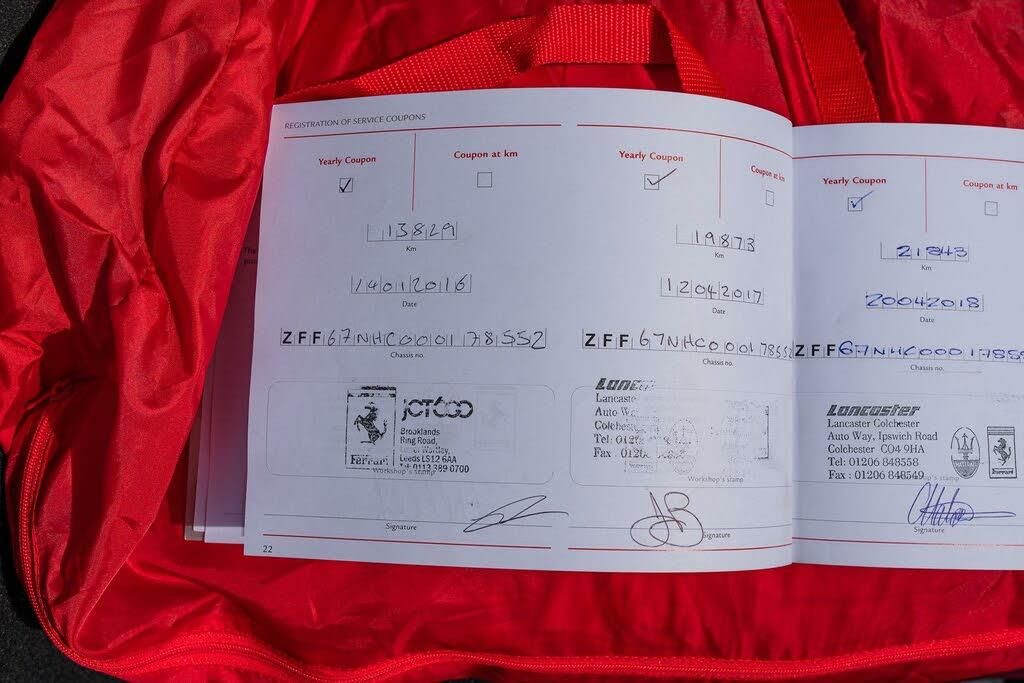 REGISTRATION OF SERVICE COUPONS
Yearly Coupon
Coupon at km
13829
Km
14012016
Date
ZFF67NHC000178552
Chassis no.
JCT600
Brooklands
Ring Road,
Leeds LS12 6AA
Tel: 0113 389 0700
Ferrari
Workshop's stamp
Signature
22
Yearly Coupon
Coupon at km
19873
Km
12042017
Date
ZFF67NHC000178552
Chassis no.
Lancaste
Auto Wa
Colchest
Tel:
Fax :
Workshop's stamp
Signature
Yearly Coupon
Coupon at km
21843
Km
20042018
Date
ZFF67NHC0001785
Chassis no.
Lancaster
Lancaster Colchester
Auto Way, Ipswich Road
Colchester CO4 9HA
Tel: 01206 848558
Fax : 01206 848549
MASERATI
Ferrari
p's stamp
Signature